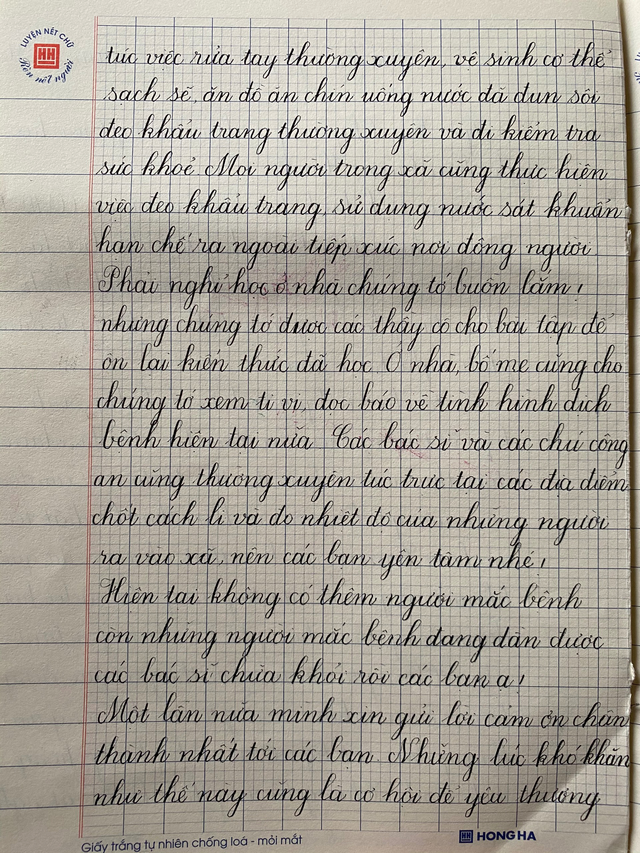 LUYỆN NÉT CHỮ
HH
Rèn nết người
tục việc rửa tay thường xuyên, vệ sinh cơ thể
sạch sẽ, ăn đồ ăn chín uống nước đã đun sôi
đeo khẩu trang thường xuyên và đi kiểm tra
sức khoẻ. Mọi người trong xã cũng thực hiện
việc đeo khẩu trang, sử dụng nước sát khuẩn
hạn chế ra ngoài tiếp xúc nơi đông người.
Phải nghỉ học ở nhà chúng tớ buồn lắm!
nhưng chúng tớ được các thầy cô cho bài tập để
ôn lại kiến thức đã học. Ở nhà, bố mẹ cũng cho
chúng tớ xem ti vi, đọc báo về tình hình dịch
bệnh hiện tại nữa. Các bác sĩ và các chú công
an cũng thường xuyên túc trực tại các địa điểm
chốt cách li và đo nhiệt độ của những người
ra vào xã, nên các bạn yên tâm nhé!
Hiện tại không có thêm người mắc bệnh
còn những người mắc bệnh đang dần được
các bác sĩ chữa khỏi rồi các bạn ạ!
Một lần nữa mình xin gửi lời cảm ơn chân
thành nhất tới các bạn. Những lúc khó khăn
như thế này cũng là cơ hội để yêu thương
Giấy trắng tự nhiên chống loá - mỏi mắt
HH HONG HA